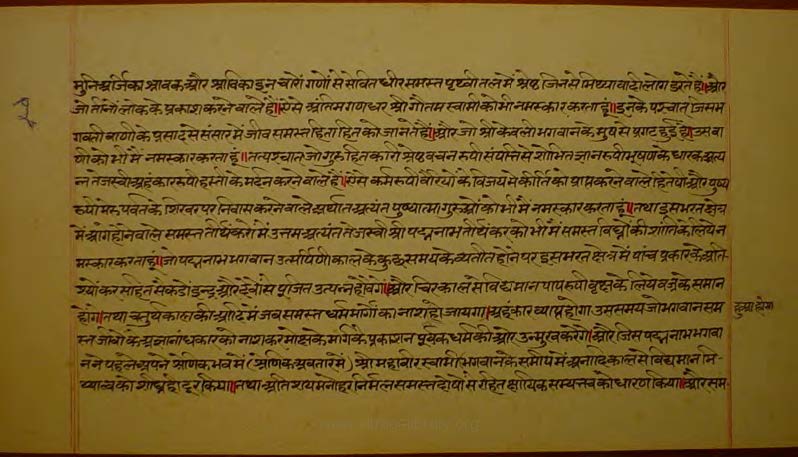 मुनि अर्जिका श्रावक और श्राविका इन चारों गणों से सेवित धीर समस्त पृथ्वी तल में श्रेष्ठ जिनसे मिथ्यावादी लोग डरते हैं॥ और
जो तीनों लोक के प्रकाश करने वाले हैं॥ ऐसे अंतिम गणधर श्री गौतम स्वामी को भी नमस्कार करता हूं॥ इनके पश्चात् जिस भ
गवती वाणी के प्रसाद से संसार में जीव समस्त हिताहित को जानते हैं॥ और जो श्री केवली भगवान के मुष से प्रगट हुई है॥ उस वा
णी को भी मैं नमस्कार करता हूं॥ तत्पश्चात् जो गुरु हितकारी श्रेष्ठ वचन रूपी संपत्ति से शोभित ज्ञान रूपी भूषण के धारक अत्य
न्त तेजस्वी अहंकार रूपी हस्ती के मर्दन करने वाले हैं॥ ऐसे कर्म रूपी वैरियों के विजय में कीर्ति को प्राप्त करने वाले हितैषी और पुण्य
रूपी मेरु पर्वत के शिखर पर निवास करने वाले अर्थात् अत्यंत पुण्यात्मा गुरुओं को भी मैं नमस्कार करता हूं॥ तथा इस भरत क्षेत्र
में आगे होने वाले समस्त तीर्थंकरों में उत्तम अत्यंत तेजस्वी श्री पद्मनाभ तीर्थंकर को भी मैं समस्त विघ्नों की शांति के लिये न
मस्कार करता हूं॥ जो पद्मनाभ भगवान उत्सर्पिणी काल के कुछ समय के व्यतीत होने पर इस भरत क्षेत्र में पांच प्रकार के अति
शयों कर सहित सैकड़ों इन्द्र और देवों से पूजित उत्पन्न होवेंगे॥ और चिरकाल से विद्यमान पाप रूपी वृक्ष के लिये वज्र के समान
होंगे॥ तथा चतुर्थ काल की आदि में जब समस्त धर्म मार्गों का नाश हो जायगा॥ अहंकार व्याप्त होगा उस समय जो भगवान सम
स्त जीवों के अज्ञानांधकार को नाश कर मोक्ष के मार्ग के प्रकाशन पूर्वक धर्म की और उन्मुख करेंगे॥ और जिस पद्मनाभ भगवा
न ने पहले अपने श्रेणिक भव में (श्रेणिक अवतार में) श्री महावीर स्वामी भगवान के समीप में अनादि काल से विद्यमान मि
थ्यात्व को शीघ्र ही दूर किया॥ तथा अतिशय मनोहर निर्मल समस्त दोषों से रहित क्षायिक सम्यक्त्व को धारण किया॥ और सम
हुआ होगा